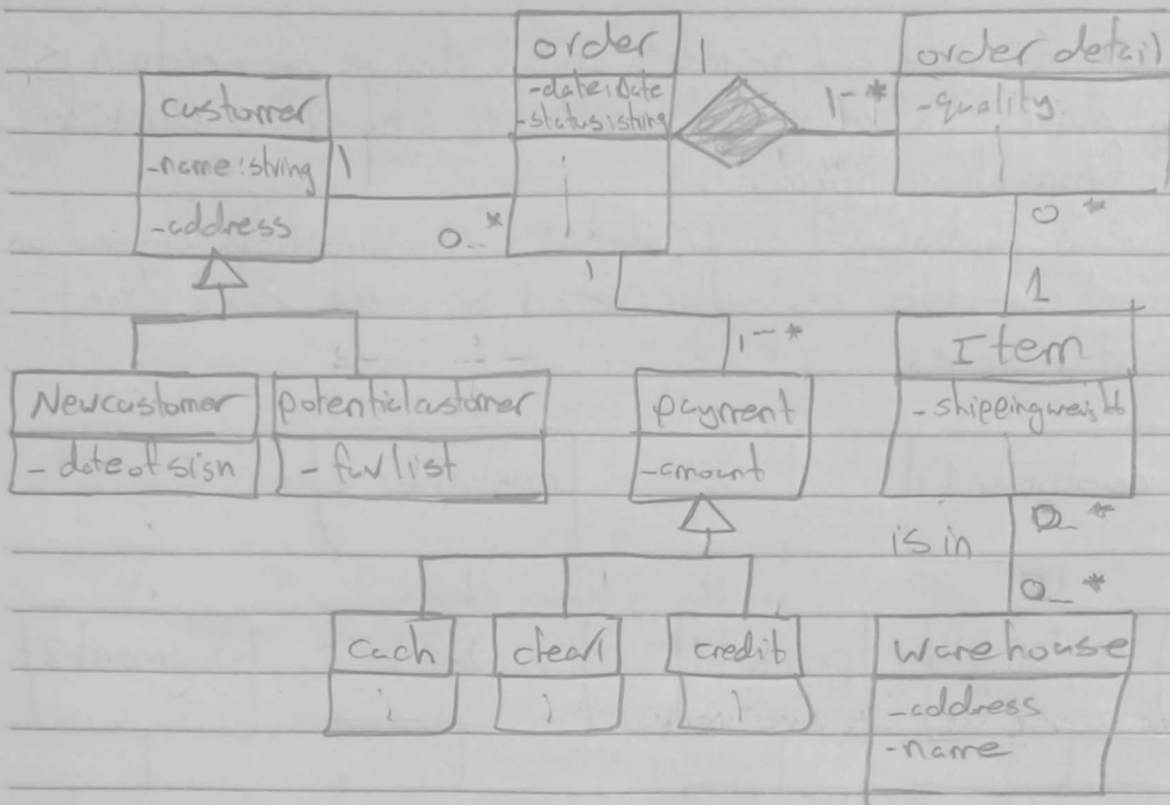 order
-date:Date
-status:string
1
1-*
order detail
-quality
customer
-name:string
-address
1
0..*
1
1-*
0 *
1
Newcustomer
-dateofsign
potentialcustomer
-favlist
payment
-amount
Item
is in
0_*
cach
credit
warehouse
-address
-name